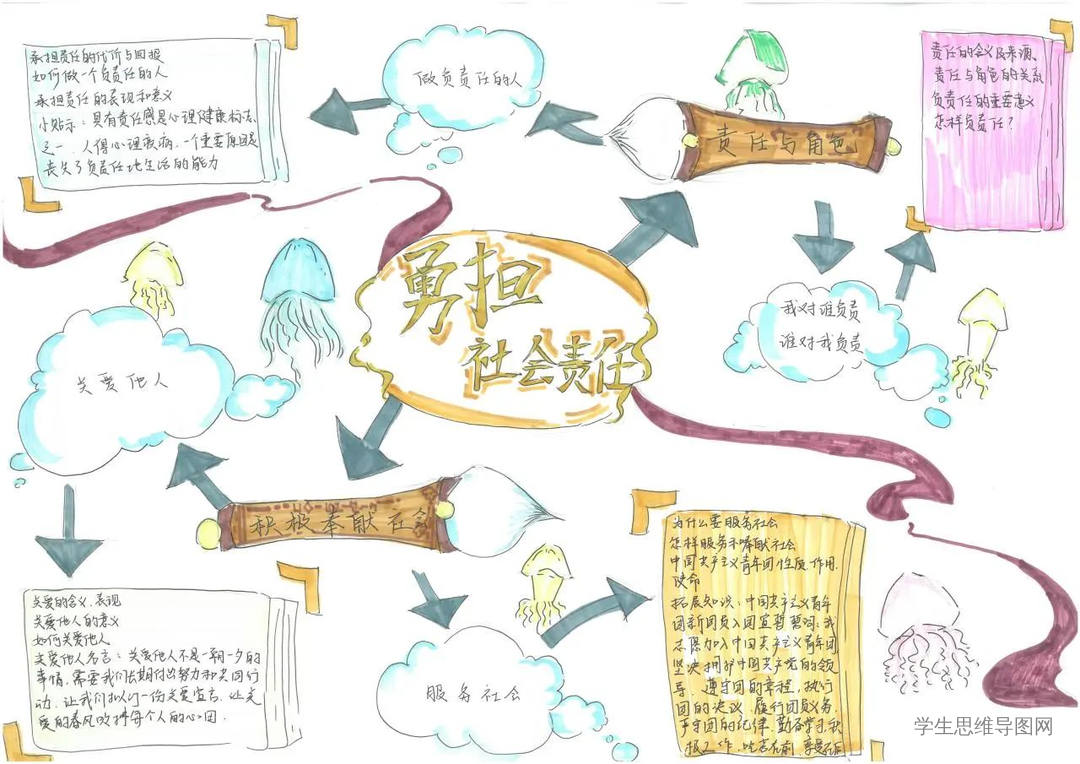 勇担
社会责任
责任与角色
做负责任的人
承担责任的代价与回报
如何做一个负责任的人
承担责任的表现和意义
小贴示：具有责任感是心理健康标志
之一，人得心理疾病，一个重要原因是
丧失了负责任地生活的能力
我对谁负责
谁对我负责
责任的含义及来源、
责任与角色的关系
负责任的重要意义
怎样负责任？
积极奉献社会
关爱他人
关爱的含义、表现
关爱他人的意义
如何关爱他人
关爱他人名言：关爱他人不是一朝一夕的
事情，需要我们长期付出努力和共同行
动，让我们拟门一份关爱宣言，让关
爱的春风吹拂每个人的心田．
服务社会
为什么要服务社会
怎样服务和奉献社会
中国共产主义青年团性质、作用、
使命
拓展知识：中国共产主义青年
团新团员入团宣誓誓词：我
志愿加入中国共产主义青年团
坚决拥护中国共产党的领
导，遵守团的章程，执行
团的决议，履行团员义务，
严守团的纪律，勤奋学习，积
极工作，吃苦在前，享受在后
学生思维导图网